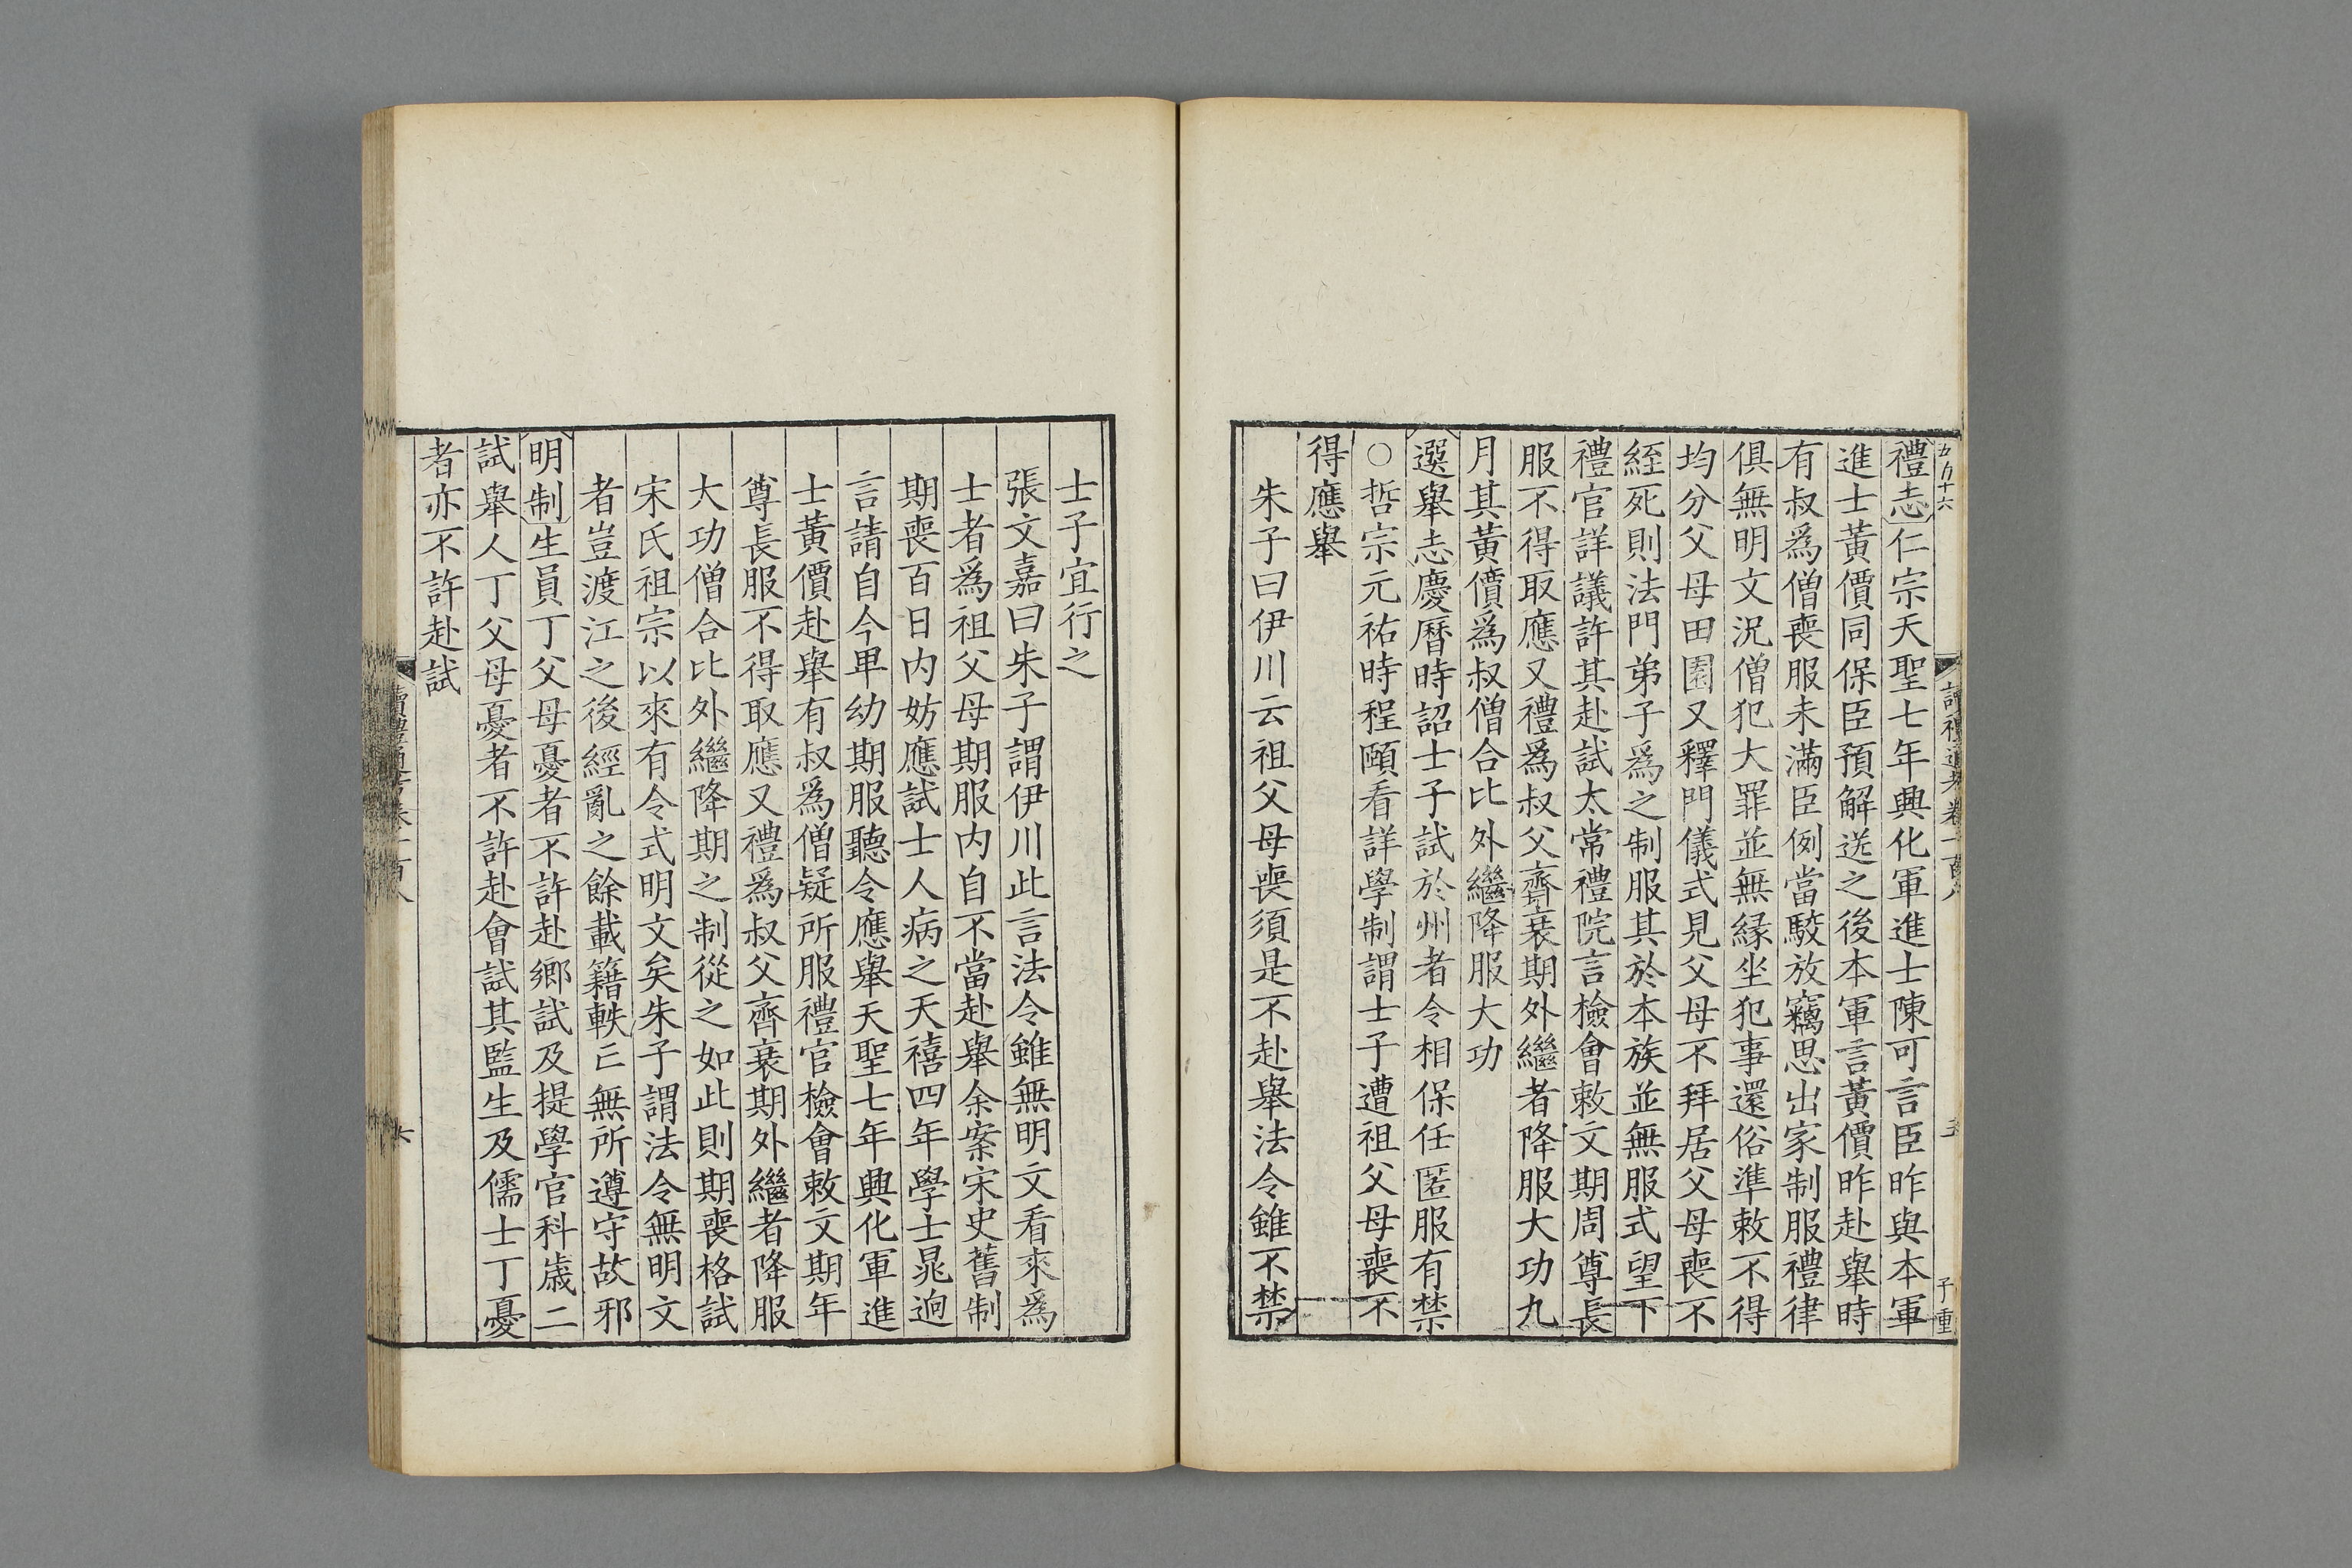 禮志仁宗天聖七年興化軍進士陳可言臣昨與本軍
進士黃價同保臣預解送之後本軍言黃價昨赴舉時
有叔爲僧喪服未滿臣例當駮放竊思出家制服禮律
俱無明文況僧犯大罪並無緣坐犯事還俗準敕不得
均分父母田園又釋門儀式見父母不拜居父母喪不
絰死則法門弟子爲之制服其於本族並無服式望下
禮官詳議許其赴試太常禮院言檢會敕文期周尊長
服不得取應又禮爲叔父齊衰期外繼者降服大功九
月其黃價爲叔僧合比外繼降服大功
選舉志慶曆時詔士子試於州者令相保任匿服有禁
○哲宗元祐時程頤看詳學制謂士子遭祖父母喪不
得應舉
朱子曰伊川云祖父母喪須是不赴舉法令雖不禁
士子宜行之
張文嘉曰朱子謂伊川此言法令雖無明文看來爲
士者爲祖父母期服內自不當赴舉余案宋史舊制
期喪百日內妨應試士人病之天禧四年學士晁迥
言請自今卑幼期服聽令應舉天聖七年興化軍進
士黃價赴舉有叔爲僧疑所服禮官檢會敕文期年
尊長服不得取應又禮爲叔父齊衰期外繼者降服
大功僧合比外繼降期之制從之如此則期喪格試
宋氏祖宗以來有令式明文矣朱子謂法令無明文
者豈渡江之後經亂之餘載籍軼亡無所遵守故邪
明制生員丁父母憂者不許赴鄉試及提學官科歲二
試舉人丁父母憂者不許赴會試其監生及儒士丁憂
者亦不許赴試
讀禮通考卷一百八